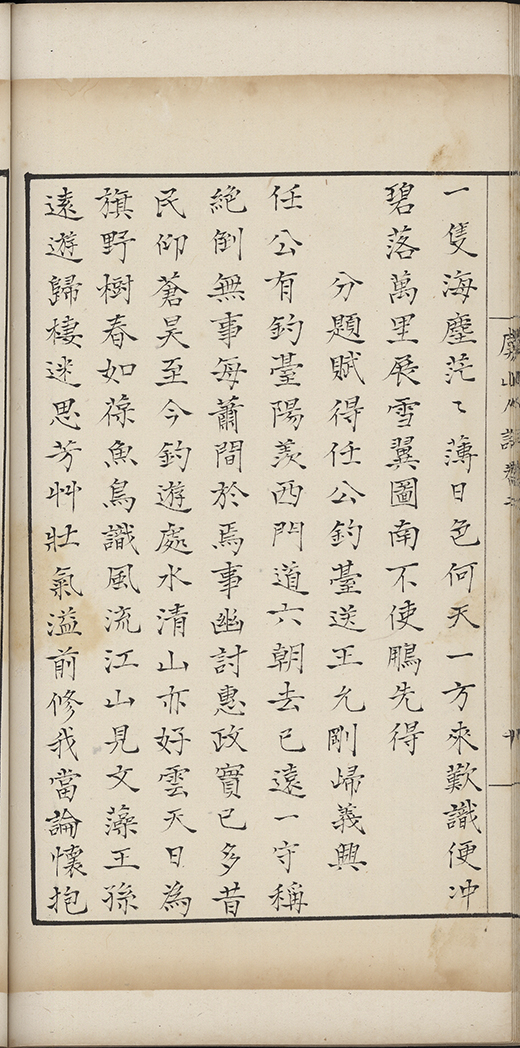 一隻海塵茫〻薄日色何天一方來歎識便冲
碧落萬里展雪翼圖南不使鵬先得
分題賦得任公釣臺送王允剛歸義興
任公有釣臺陽羨西門道六朝去已遠一守稱
絕倒無事每蕭間於焉事幽討惠政實已多昔
民仰蒼昊至今釣遊處水清山亦好雲天日為
旗野樹春如葆魚鳥識風流江山見文藻王孫
遠遊歸棲迷思芳艸壯氣溢前修我當論懷抱